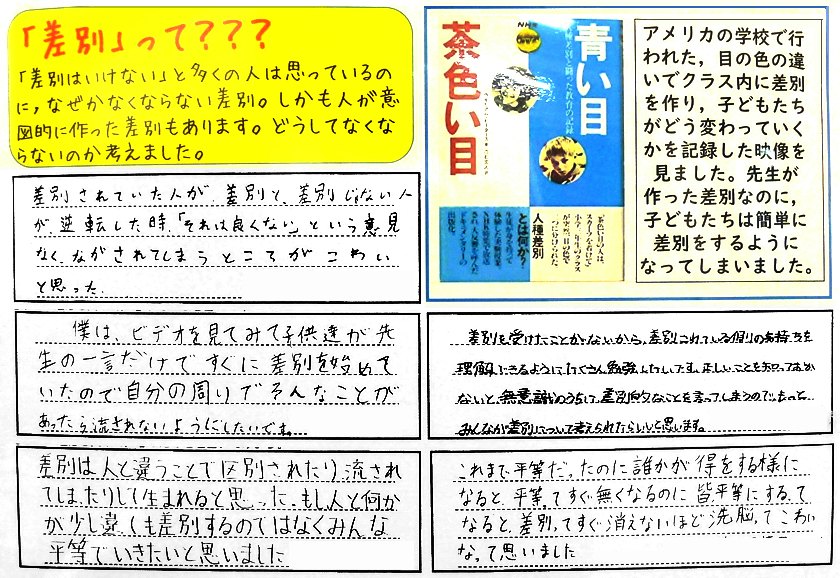 「差別」って???
「差別はいけない」と多くの人は思っているの
に,なぜかなくならない差別。しかも人が意
図的に作った差別もあります。どうしてなくな
らないのか考えました。
NHK
青い目
茶色い目
人種差別と闘った教育の記録
人種差別
とは何か?
アメリカの学校で行
われた，目の色の違
いでクラス内に差別
を作り，子どもたち
がどう変わっていく
かを記録した映像を
見ました。先生が
作った差別なのに，
子どもたちは簡単に
差別をするように
なってしまいました。
差別されていた人が、差別と、差別じゃない人
が逆転した時、「それは良くない」という意見
なく、ながされてしまうところがこわい
と思った
僕は、ビデオを見てみて子供達が先
生の一言だけですぐに差別を始めて
いたので自分の周りでそんなことが
あったら流されないようにしたいです。
差別を受けたことがないから、差別されている側の気持ちを
理解できるようにたくさん勉強したいです。正しいことを知っておか
ないと、無意識のうちに差別的なことを言ってしまうので、もっと
みんなが差別について考えられたらいいと思います。
差別は人と違うことで区別されたり流され
てしまったりして生まれると思った。もし人と何か
が少し違くも差別するのではなくみんな
平等でいきたいと思いました
これまで平等だったのに誰かが得をする様に
なると平等ってすぐ無くなるのに皆平等にするって
なると差別ってすぐ消えないほど洗脳ってこわい
なって思いました